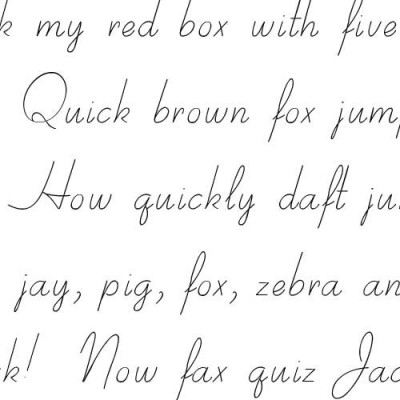 k my red box with five
Quick brown fox jum
How quickly daft ju
jay, pig, fox, zebra an
k! Now fax quiz Jac